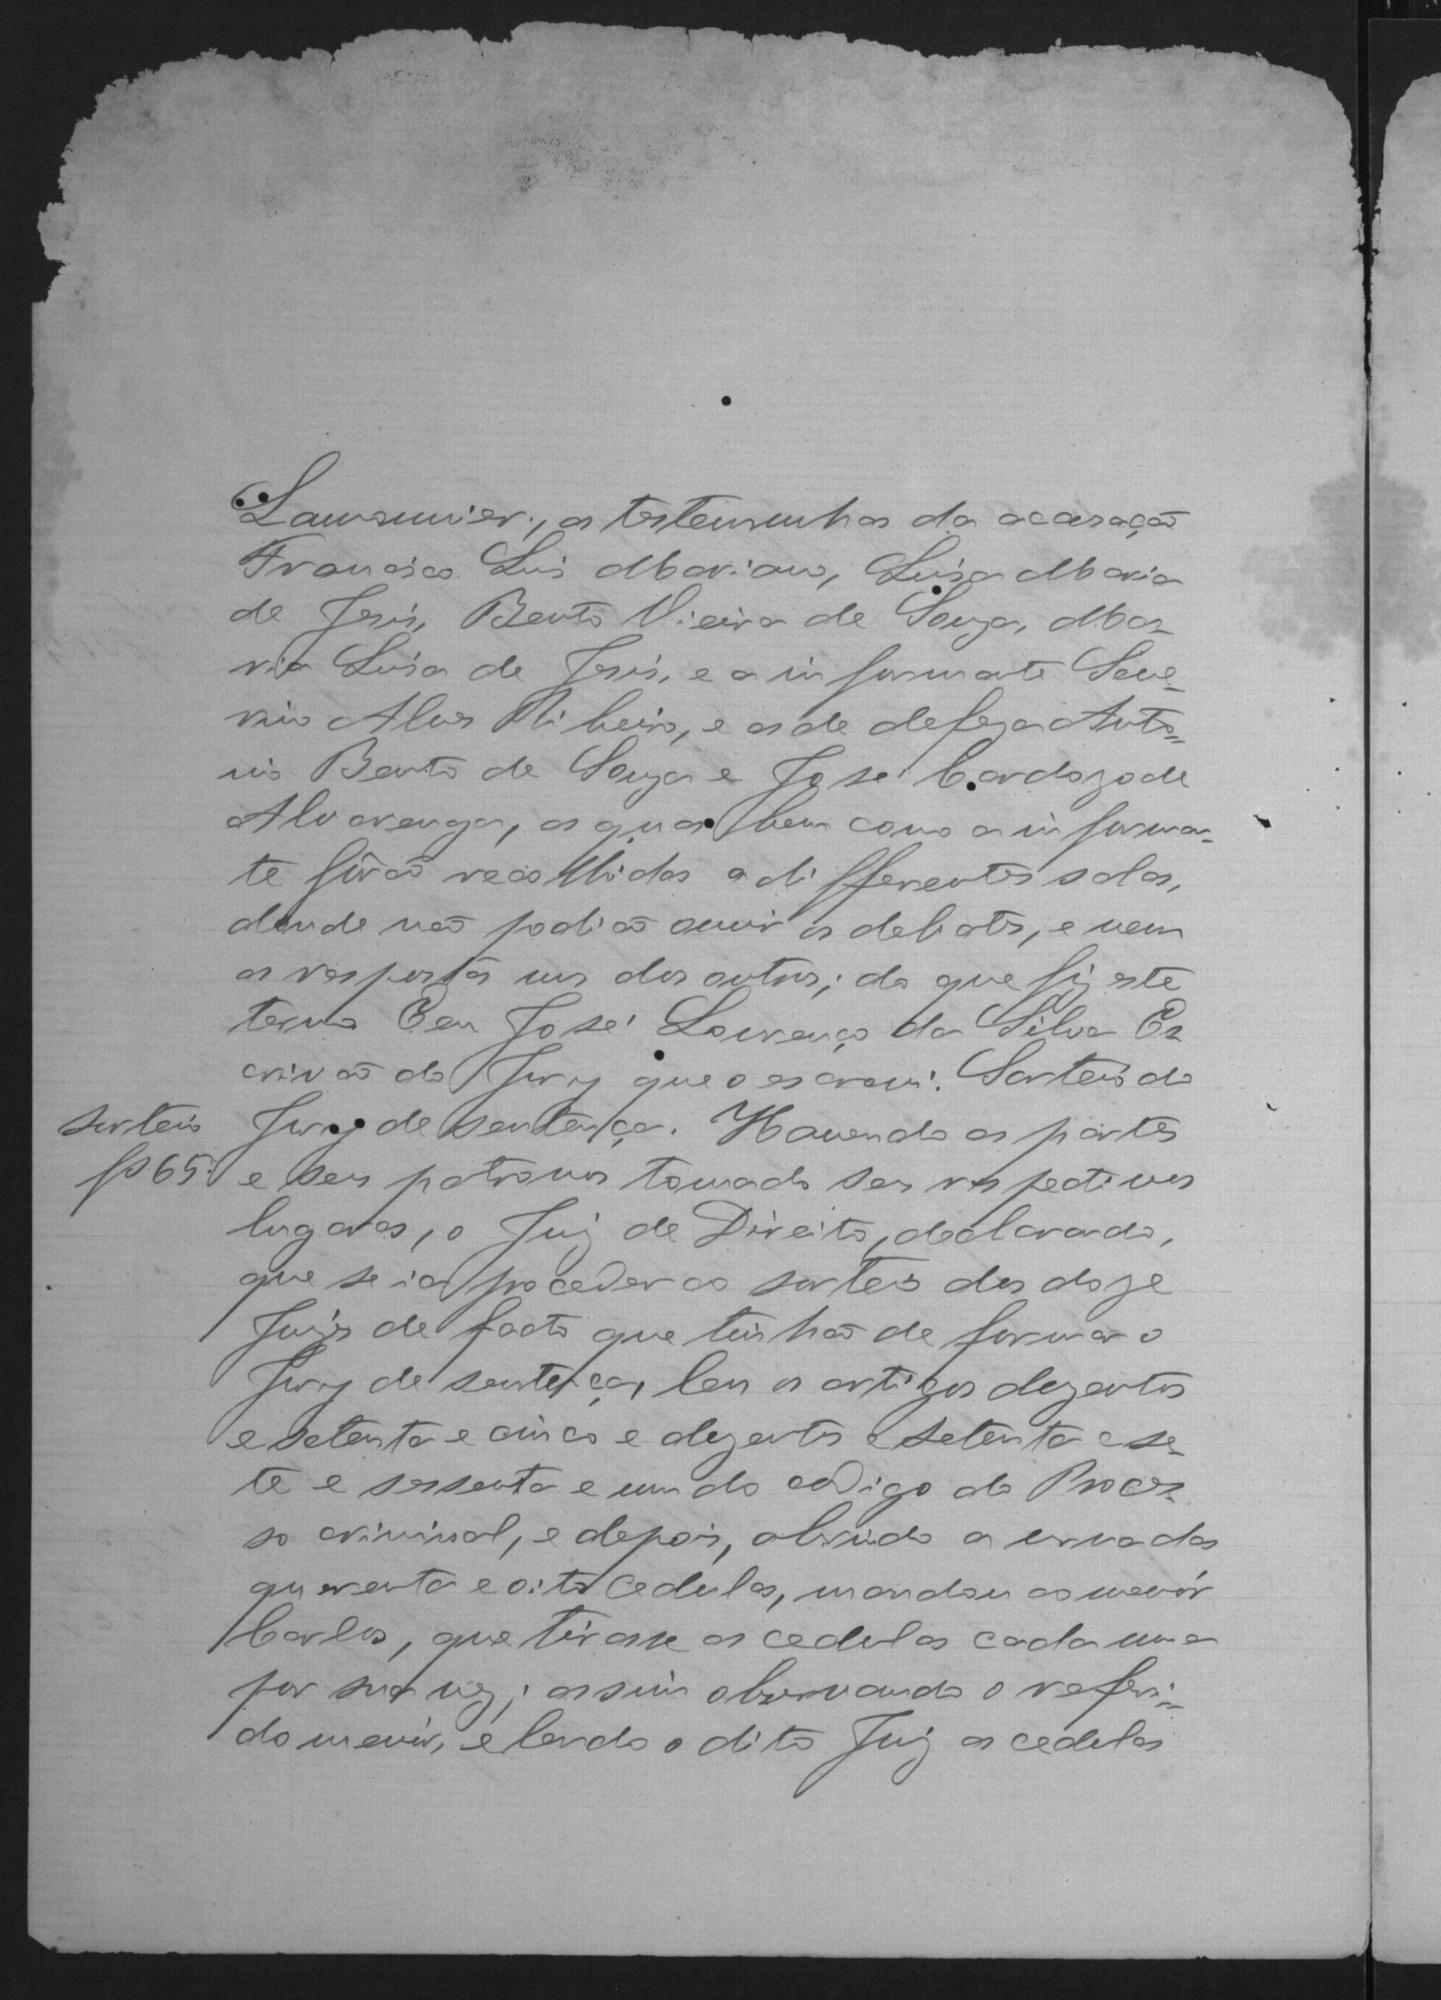 Laurunier., as testemunhas da accusação
Francisco Luis Mariano, Luisa Maria
de Jesús, Bento Vieira de Souza, Ma-
ria Luisa de Jesús, e a informante Seve-
rina Alves Ribeiro, e as de defeza Anto-
nio Bento de Souza e José Cardozo de
Alvarenga, as quas bem como a informan-
te fôrão recolhidas a differentes salas,
donde não podião ouvir os debates, e nem
as respostas uns dos outros; do que fiz este
termo Eeu José Lourenço da Silva Es-
crivão do Jury que o escrevi. Sorteio do
sorteio
fs 65.
Jury de sentença. Havendo as partes
e seus patronos tomado seus respectivos
lugares, o Juiz de Direito, declarando,
que se ia proceder ao sorteio dos doze
Juizes de facto que tinhão de formar o
Jury de sentença, leu os artigos dozentos
e setenta e cinco e dozentos e setenta e se-
te e sessenta e um do codigo do Proces-
so criminal, e depois, abrindo a urna das
quarenta e oito cedulas, mandou ao menór
Carlos, que tirasse as cedulas cada uma
por sua vez; assim observando o referi-
do menór, e lendo o dito Juiz as cedulas